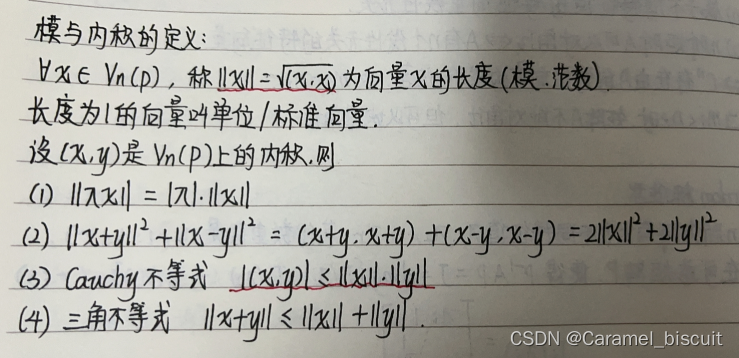 模与内积的定义:
∀x∈Vn(P),称||x||=√(x,x)为向量x的长度(模.范数)
长度为1的向量叫单位/标准向量.
设(x,y)是Vn(P)上的内积.则
(1) ||λx|| = |λ|·||x||
(2) ||x+y||²+||x-y||² = (x+y,x+y)+(x-y,x-y)=2||x||²+2||y||²
(3) Cauchy不等式 |(x,y)|≤||x||·||y||
(4) 三角不等式 ||x+y||≤||x||+||y||.
CSDN @Caramel_biscuit